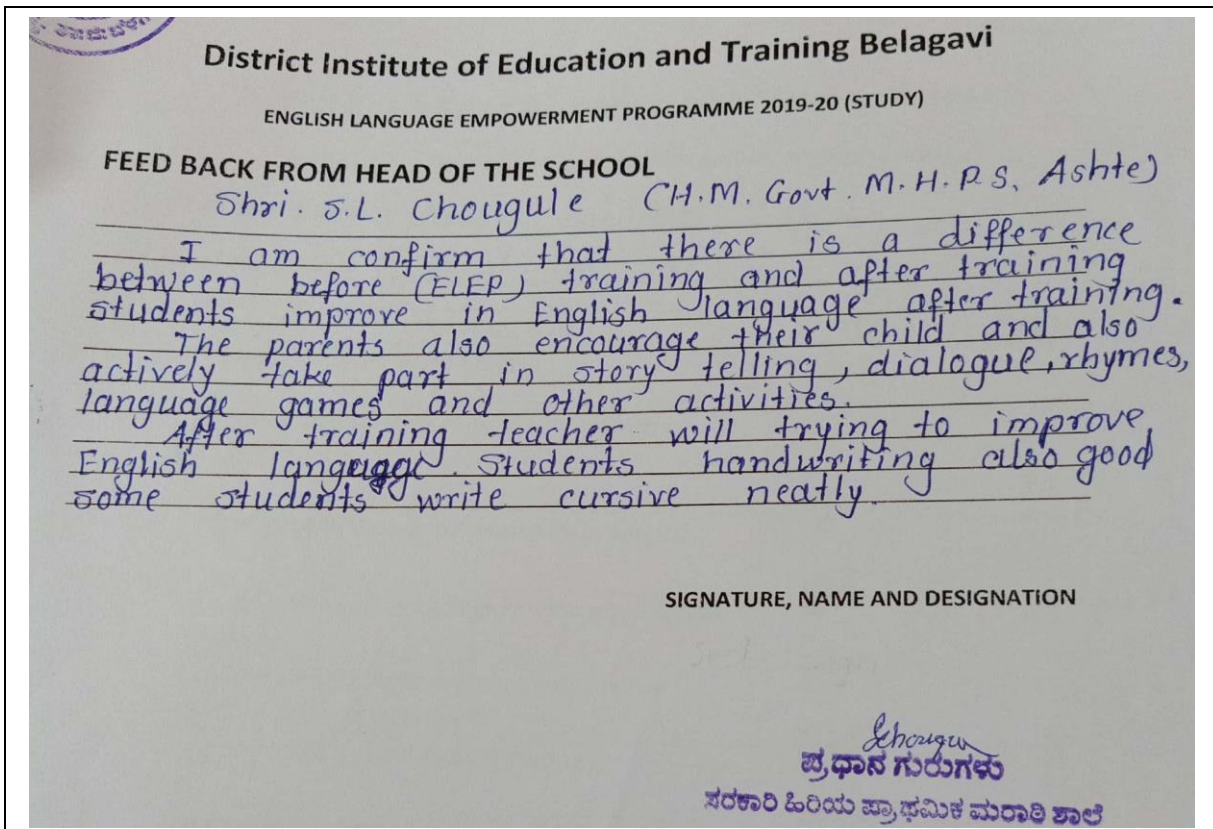 District Institute of Education and Training Belagavi
ENGLISH LANGUAGE EMPOWERMENT PROGRAMME 2019-20 (STUDY)
FEED BACK FROM HEAD OF THE SCHOOL
Shri. S.L. Chougule (H.M. Govt. M.H.P.S, Ashte)
I am confirm that there is a difference
between before (ELEP) training and after training
students improve in English language after training.
The parents also encourage their child and also
actively take part in story telling, dialogue, rhymes,
language games and other activities.
After training teacher will trying to improve
English language. Students handwriting also good
some students write cursive neatly.
SIGNATURE, NAME AND DESIGNATION
ಪ್ರಧಾನ ಗುರುಗಳು
ಸರಕಾರಿ ಹಿರಿಯ ಪ್ರಾಥಮಿಕ ಮರಾಠಿ ಶಾಲೆ